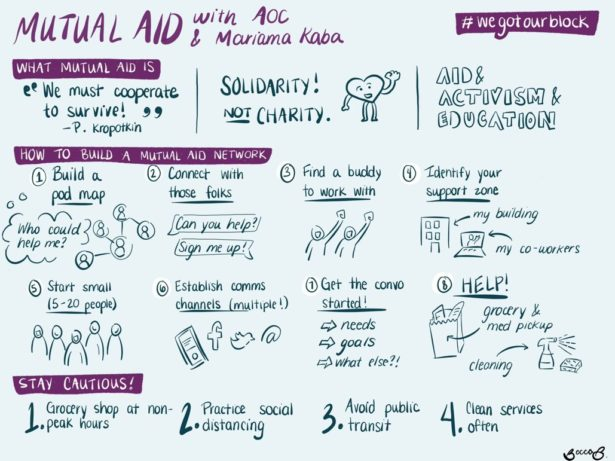 MUTUAL AID with AOC
& Mariama Kaba
#wegotourblock
WHAT MUTUAL AID IS
"We must cooperate
to survive!"
-P. Kropotkin
SOLIDARITY!
NOT CHARITY.
AID &
ACTIVISM &
EDUCATION
HOW TO BUILD A MUTUAL AID NETWORK
1 Build a
pod map
Who could
help me?
2 Connect with
those folks
Can you help?
Sign me up!
3 Find a buddy
to work with
4 Identify your
support zone
my building
my co-workers
5 Start small
(5-20 people)
6 Establish comms
channels (multiple!)
f
@
7 Get the convo
started!
⇨ needs
⇨ goals
⇨ what else?!
8 HELP!
grocery &
med pickup
cleaning
STAY CAUTIOUS!
1. Grocery shop at non-
peak hours
2. Practice social
distancing
3. Avoid public
transit
4. Clean services
often